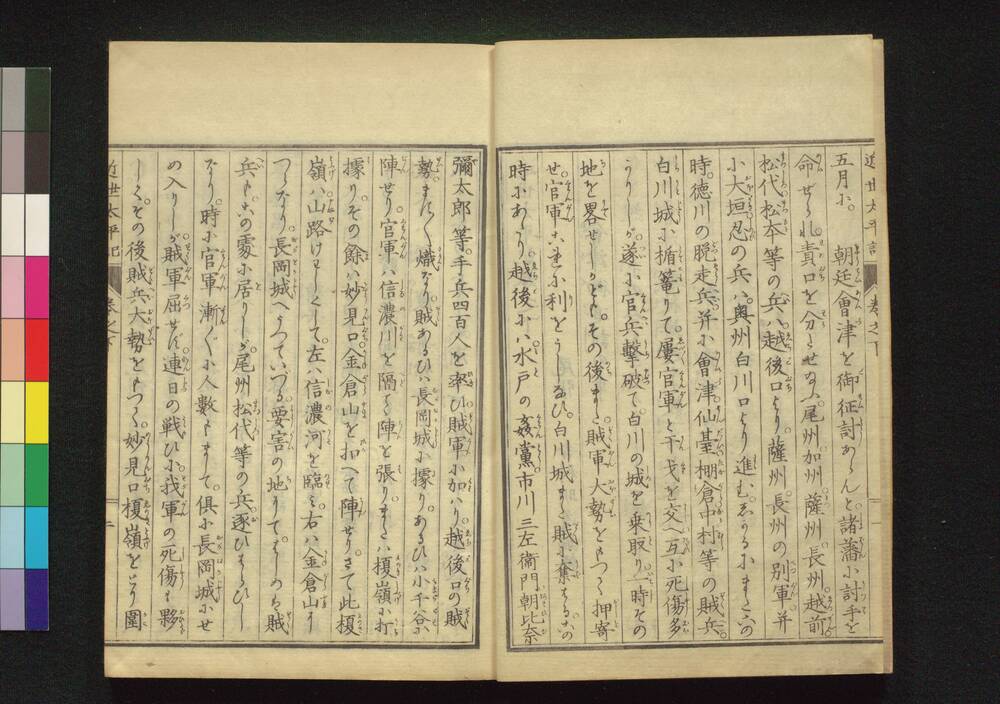 近世太平記　巻之下　一
五月小。　朝廷會津を御征討あらんと。諸藩小討手を
命せられ責口を分たせ給ふ。尾州加州薩州長州。越前
松代松本等の兵ハ越後口より。薩州長州の別軍并
小大垣忍の兵ハ。奥州白川口より進む。しかる小また六の
時。徳川の脱走兵。并小會津仙臺棚倉中村等の賊兵。
白川城小楯篭りて屢官軍と干戈を交へ互小死傷多
かりしが。遂小官兵擊破て。白川の城を乗取り。一時その
地を畧せしかども。その後また賊軍大勢をもつて押寄
せ。官軍これ小利をうしなひ。白川城また賊小奪はる。この
時小あたり。越後小ハ水戸の姦黨市川三左衞門朝比奈
彌太郎等。手兵四百人を率ひ賊軍小加ハり。越後口の賊
勢。ますく熾なり。賊あるひハ長岡城小據り。あるひハ小千谷小
陣せり。官軍ハ信濃川を隔て陣を張り。または榎嶺小打
據りその餘ハ妙見口。金倉山を扣へて陣せり。さて此榎
嶺ハ山路けはしくして。左ハ信濃河を臨み。右ハ金倉山よ
つらなり。長岡城へよつていづる。要害の地りて。はじめ賊
兵もこの處小居りしが。尾州松代等の兵逐ひはらひし
なり。時小官軍漸々小人数もまして。倶小長岡城小せ
め入りしが。賊軍屈せず。連日の戦ひ小。我軍の死傷も夥
しく。その後賊兵。大勢をもつて。妙見口榎嶺をとり圍
近世太平記　巻之下　二